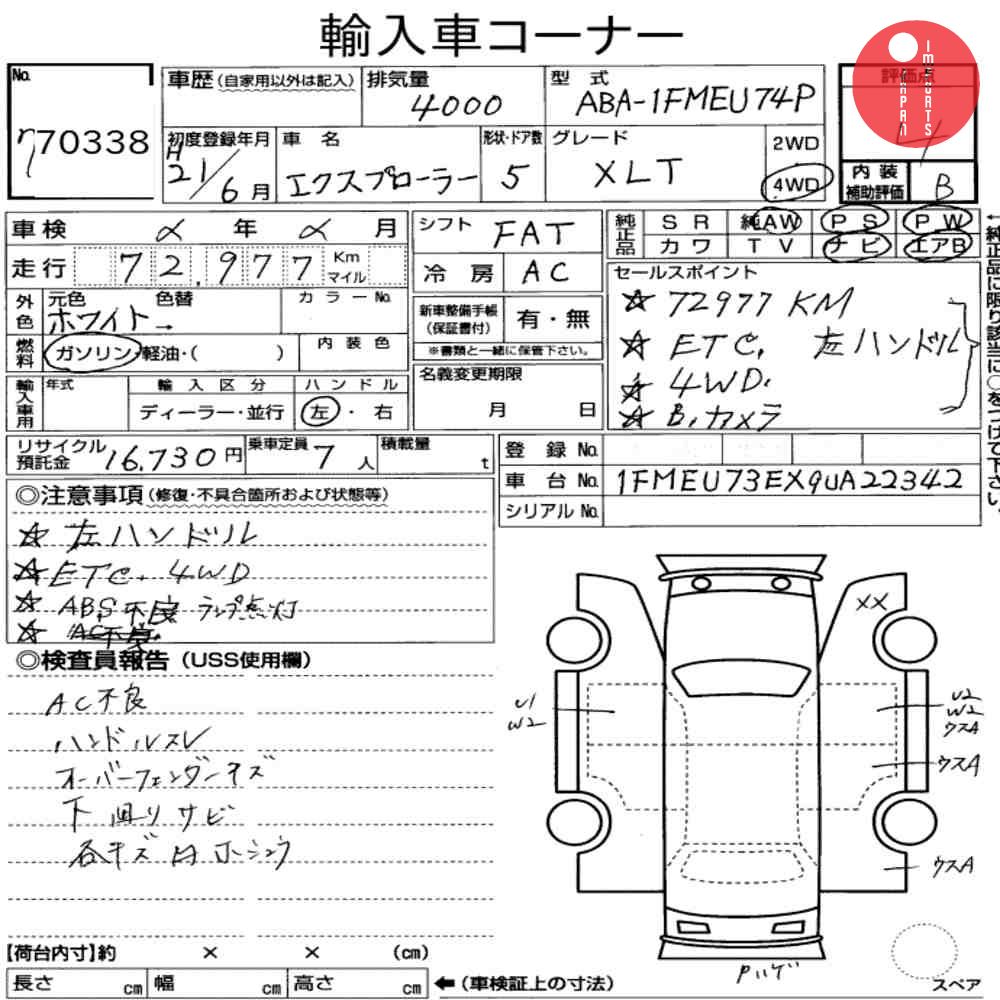 輸入車コーナー
No.
770338
車歴 (自家用以外は記入)
排気量
4000
型式
ABA-1FMEU74P
評価点
4
JAPAN
IMPORTS
初度登録年月
H21/6月
車名
エクスプローラー
形状・ドア数
5
グレード
XLT
2WD
4WD
内装
補助評価
B
車検 〆 年 〆 月
走行 72,977 Km
マイル
外色
元色
色替
ホワイト→
カラーNo.
燃料
ガソリン・軽油・( )
内装色
輸入車用
年式
輸入区分
ディーラー・並行
ハンドル
左・右
シフト
FAT
冷房
AC
新車整備手帳
(保証書付)
有・無
※書類と一緒に保管下さい。
名義変更期限
月 日
純正品
SR 純AW PS PW
カワ TV ナビ エアB
セールスポイント
☆ 72977KM
☆ ETC. 左ハンドル
☆ 4WD.
☆ B.カメラ
←純正品に限り該当に○をつけて下さい。
リサイクル
預託金
16,730円
乗車定員
7人
積載量
t
登録No.
車台No.
1FMEU73EX9UA22342
シリアルNo.
◎注意事項 (修復・不具合箇所および状態等)
☆ 左ハンドル
☆ ETC. 4WD
☆ ABS不良 ランプ点灯
☆ AC不良
◎検査員報告 (USS使用欄)
AC不良
ハンドルスレ
オーバーフェンダーキズ
下廻りサビ
各キズ
XX
U1
W2
U2
W2
ウスA
ウスA
ウスA
Pハゲ
スペア
【荷台内寸】約 × × (cm)
長さ cm 幅 cm 高さ cm ←(車検証上の寸法)